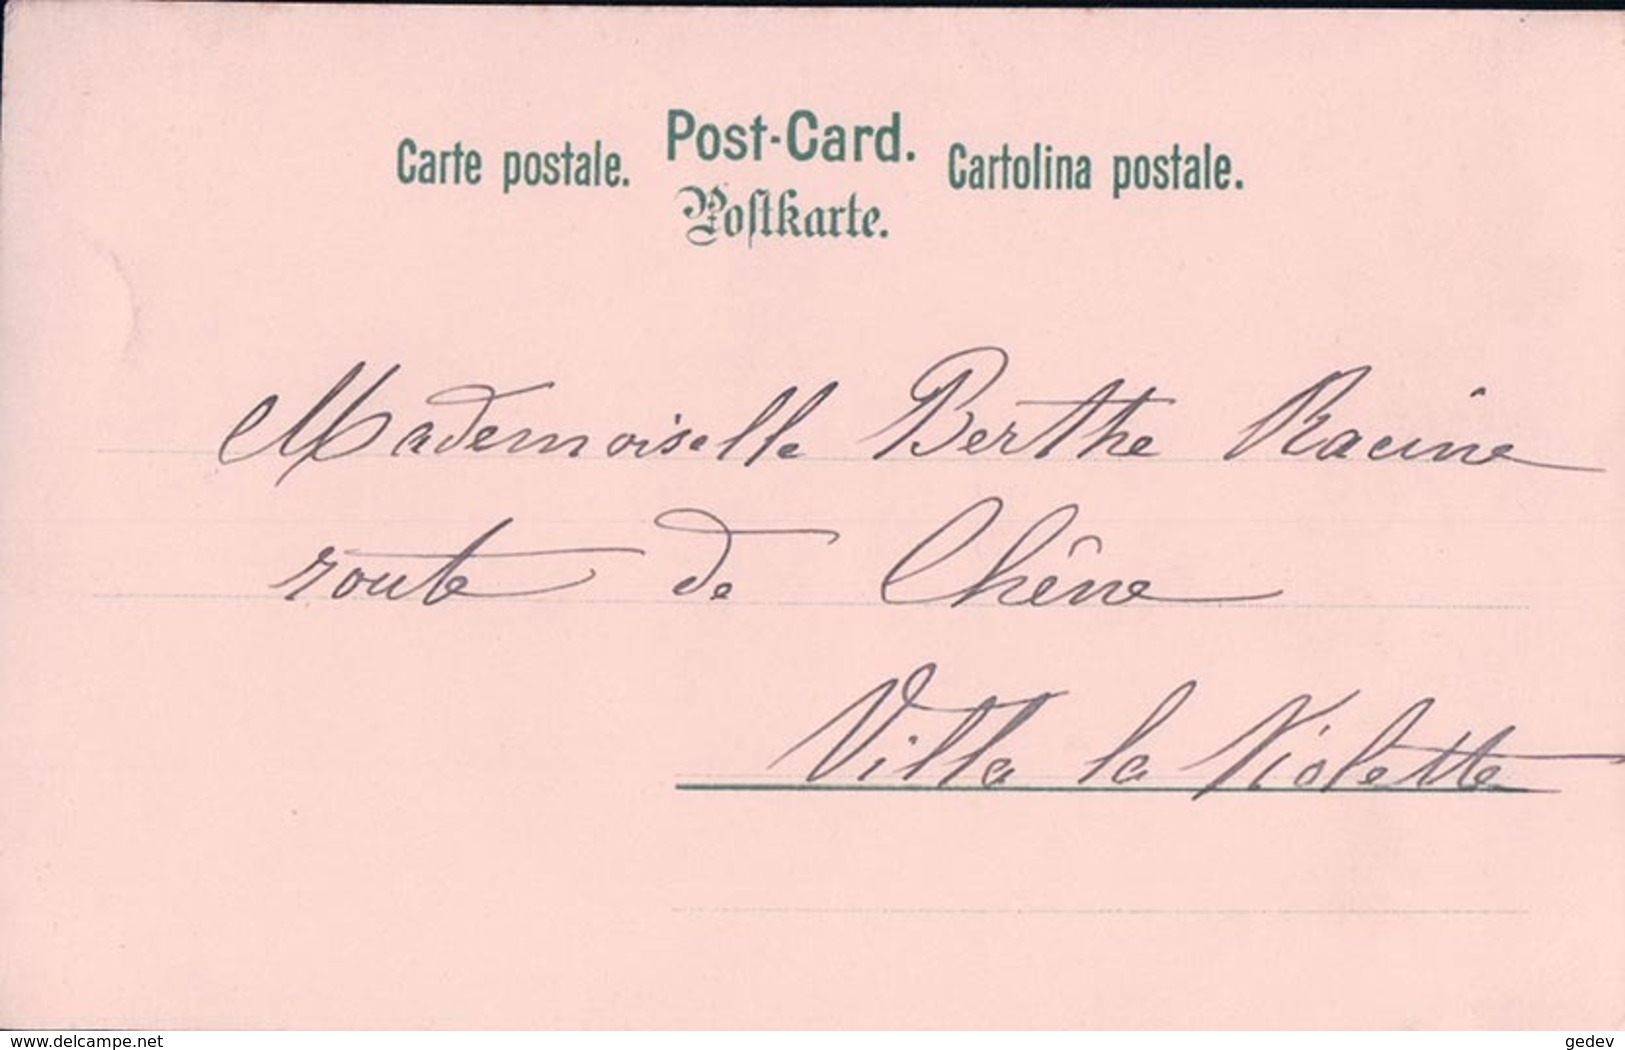 Carte postale. Post-Card. Cartolina postale.
Postkarte.
Mademoiselle Berthe Racine
route de Chêne
Villa la Violette
www.delcampe.net
gedev